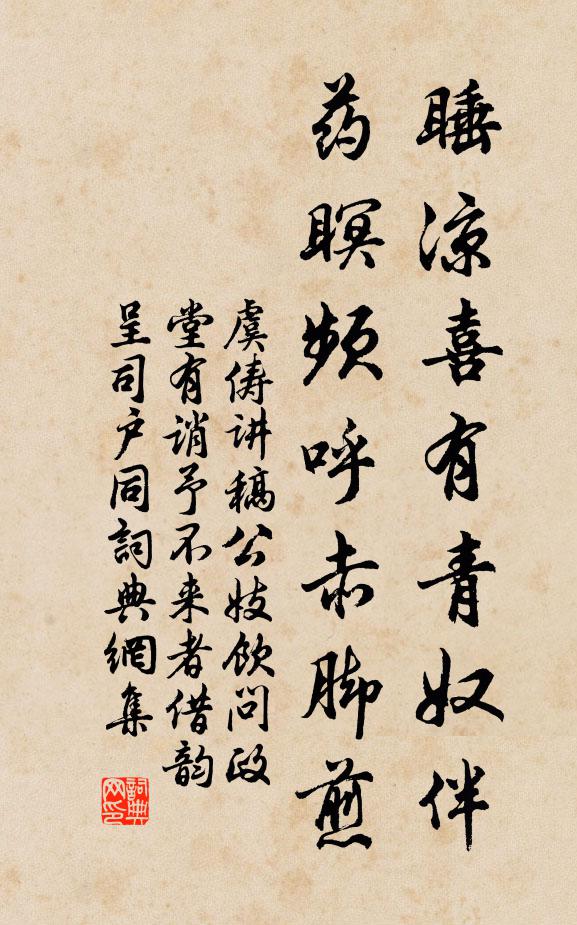 睡凉喜有青奴伴
药瞑频呼赤脚煎
虞俦讲稿公妓饮问政
堂有诮予不来者借韵
呈司户同詞典網集
詞典
网印